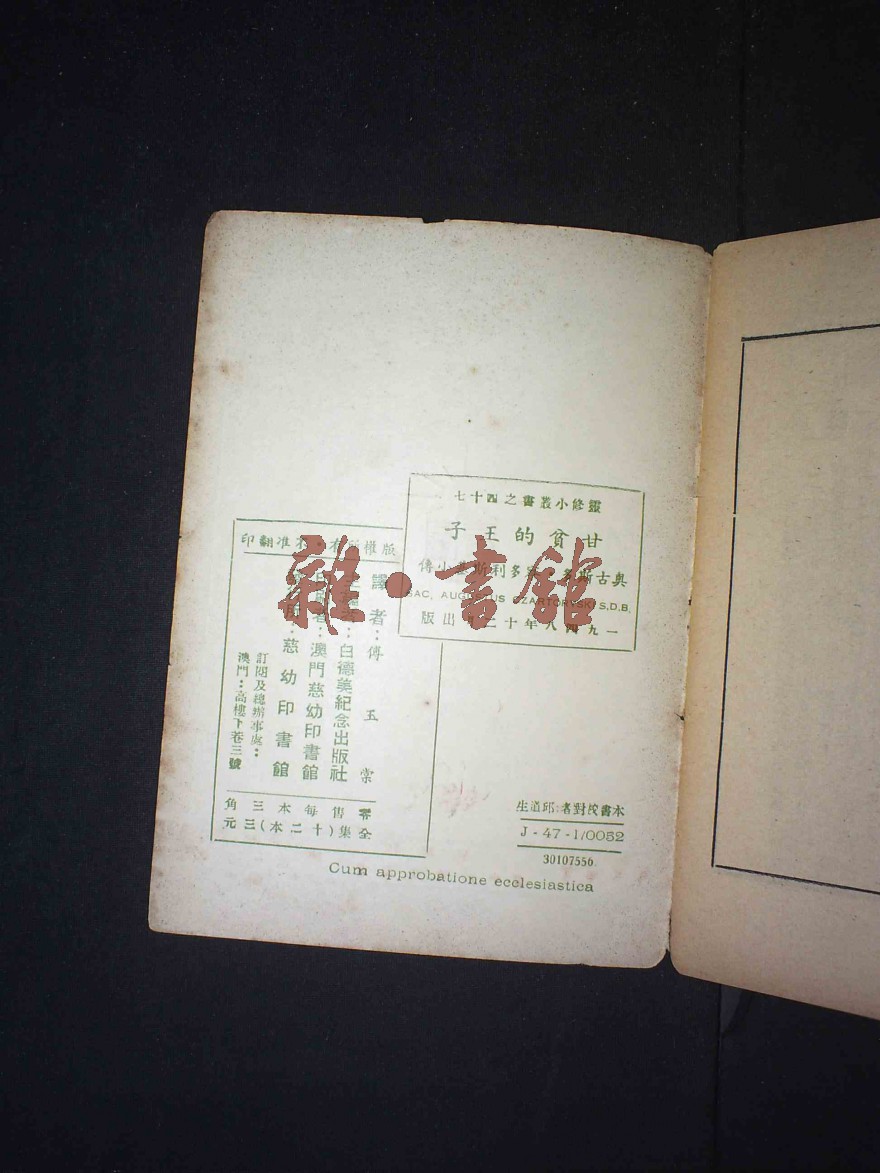 靈修小叢書之四十七
甘貧的王子
奧古斯多 多利斯基小傳
SAC, AUGUSTUS CZARTORYSKI S,D.B,
一九四八年十二月出版
版權所有・不准翻印
譯者：傅玉棠
主編者：白德美紀念出版社
印刷者：澳門慈幼印書館
發行所：慈幼印書館
訂閱及總辦事處：
澳門：高樓下巷三號
零售每本三角
全集(十二本)三元
本書校對者：邱滋生
J-47-1/0052
30107556.
Cum approbatione ecclesiastica
雜・書館